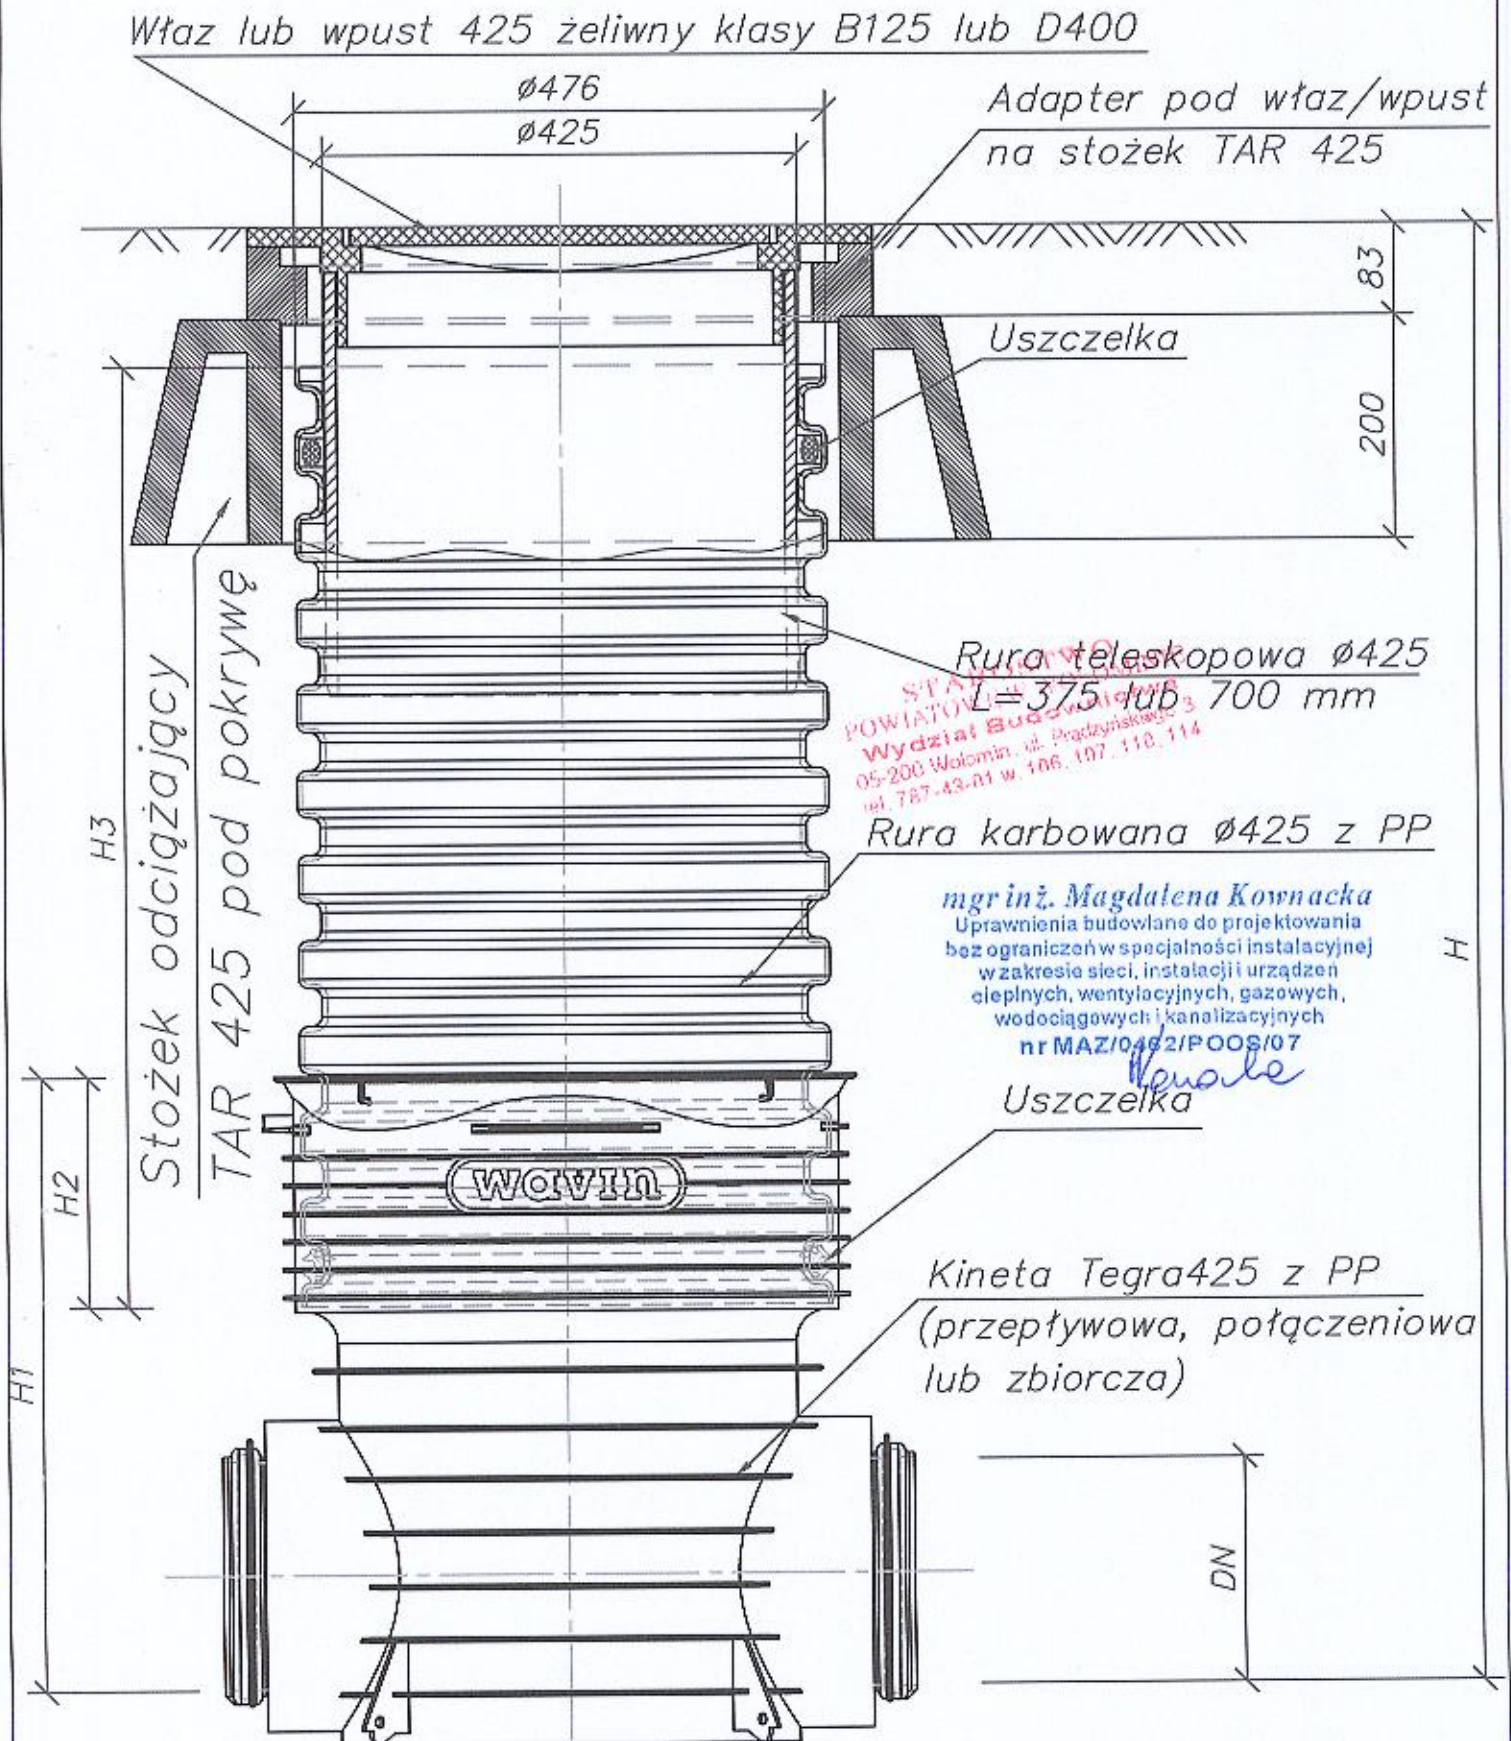 Właz lub wpust 425 żeliwny klasy B125 lub D400
ø476
ø425
Adapter pod właz/wpust
na stożek TAR 425
83
Uszczelka
200
Rura teleskopowa ø425
L=375 lub 700 mm
STAROSTWO
Wydział Budownictwa
05-200 Wołomin, ul. Prądzyńskiego 3
tel. 787-43-01 w. 106, 107, 110, 114
Rura karbowana ø425 z PP
mgr inż. Magdalena Kownacka
Uprawnienia budowlane do projektowania
bez ograniczeń w specjalności instalacyjnej
w zakresie sieci, instalacji i urządzeń
cieplnych, wentylacyjnych, gazowych,
wodociągowych i kanalizacyjnych
nr MAZ/0462/POOS/07
H
H3
Stożek odciążający
TAR 425 pod pokrywę
Uszczelka
H2
wavin
Kineta Tegra425 z PP
(przepływowa, połączeniowa
lub zbiorcza)
H1
DN